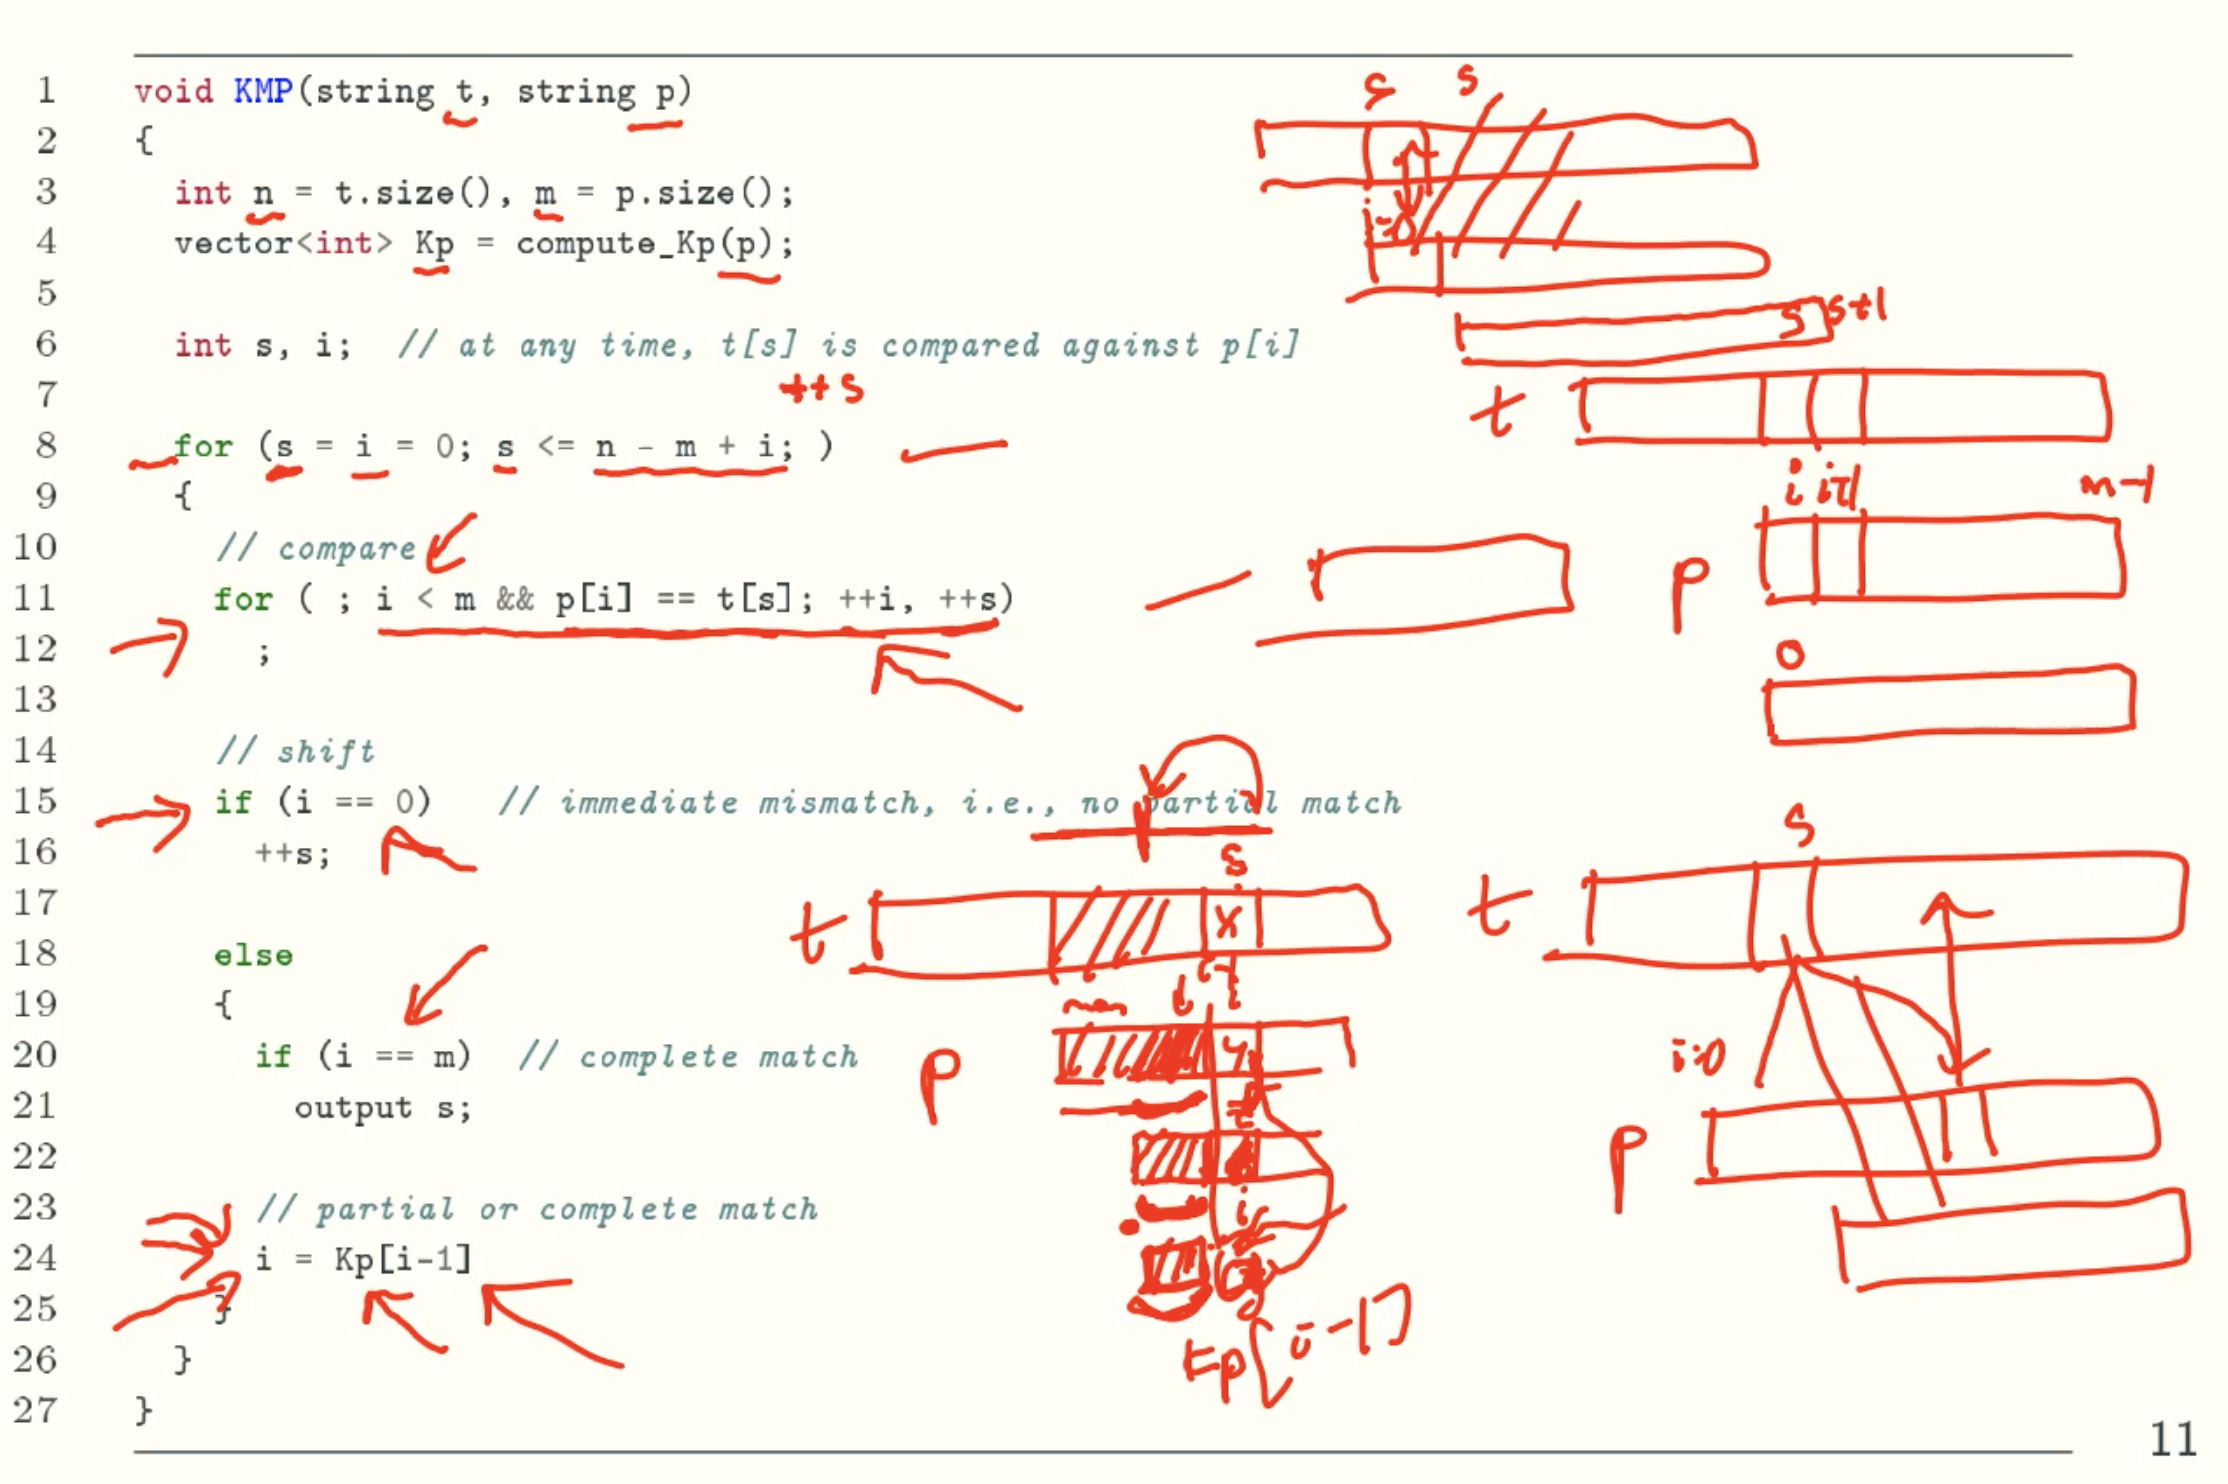 1 void KMP(string t, string p)
2 {
3 int n = t.size(), m = p.size();
4 vector<int> Kp = compute_Kp(p);
5
6 int s, i; // at any time, t[s] is compared against p[i]
7 ++s
8 for (s = i = 0; s <= n - m + i; )
9 {
10 // compare
11 for ( ; i < m && p[i] == t[s]; ++i, ++s)
12 ;
13
14 // shift
15 if (i == 0) // immediate mismatch, i.e., no partial match
16 ++s;
17
18 else
19 {
20 if (i == m) // complete match
21 output s;
22
23 // partial or complete match
24 i = Kp[i-1]
25 }
26 }
27 }
s
s
i=0
s
s+1
t
i i+1 m-1
p
0
s
t
x
i-1
i
p
s
t
i=0
p
[i-1]
11